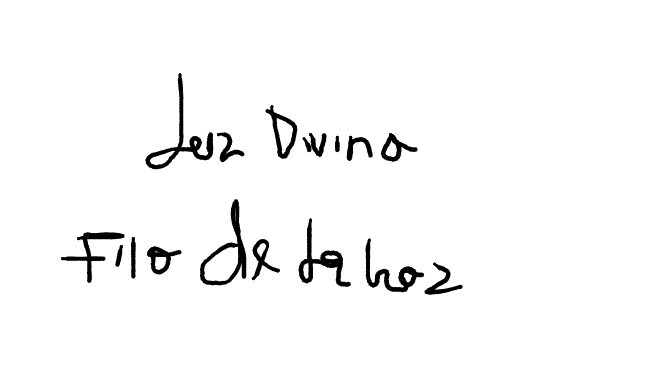 Luz Divina
Filo de la hoz